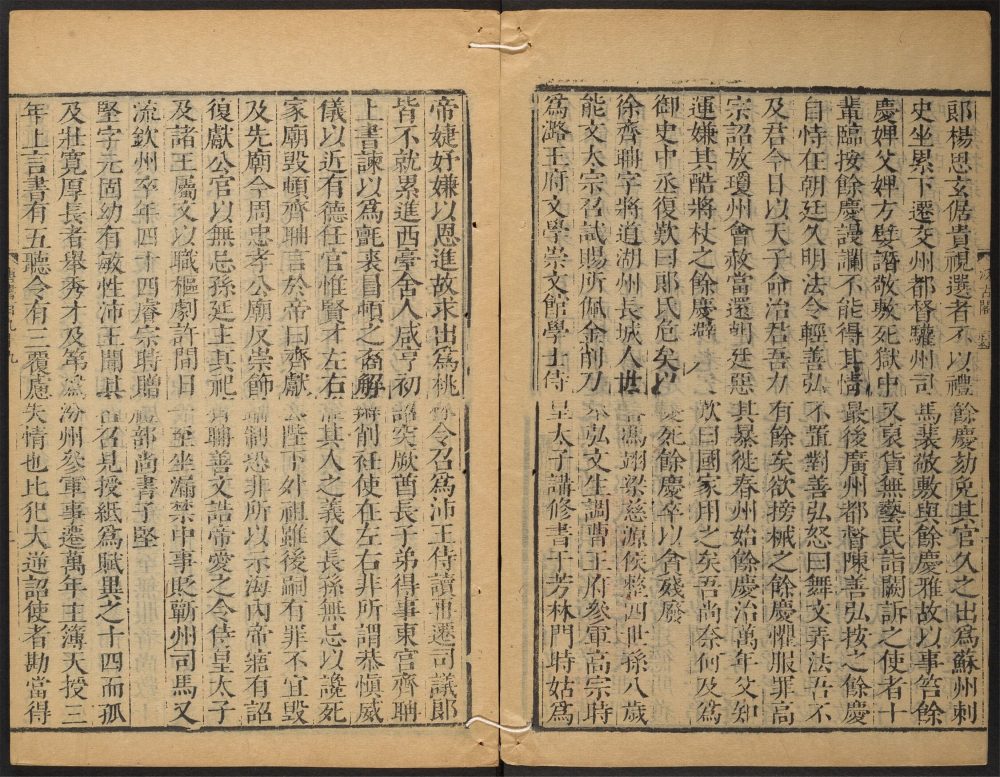 郎楊思玄倨貴視選者不以禮餘慶劾免其官久之出爲蘇州刺
史坐累下遷交州都督驩州司馬裴敬敷與餘慶雅故以事笞餘
慶婢父婢方嬖譖敬敷死獄中又裒貨無藝民詣闕訴之使者十
輩臨按餘慶謾讕不能得其情最後廣州都督陳善弘按之餘慶
自恃在朝廷久明法令輕善弘不置對善弘怒曰舞文弄法吾不
及君今日以天子命治君吾力有餘矣欲搒械之餘慶懼服罪高
宗詔放瓊州會赦當還朝廷惡其暴徙春州始餘慶治萬年父知
運嫌其酷將杖之餘慶辟 歎曰國家用之矣吾尚奈何及爲
御史中丞復歎曰郎氏危矣以憂死餘慶卒以貪殘廢
徐齊聃字將道湖州長城人世客馮翊梁慈源侯整四世孫八歲
能文太宗召試賜所佩金削刀 弘文生調曹王府參軍高宗時
爲潞王府文學崇文館學士侍皇太子講修書于芳林門時姑爲
帝婕妤嫌以恩進故求出爲桃林令召爲沛王侍讀再遷司議郎
皆不就累進西臺舍人咸亨初詔突厥酋長子弟得事東宮齊聃
上書諫以爲氈裘冒頓之裔解辮削衽使在左右非所謂恭愼威
儀以近有德任官惟賢才左右惟其人之義又長孫無忌以讒死
家廟毀頓齊聃言於帝曰齊獻公陛下外祖雖後嗣有罪不宜毀
及先廟今周忠孝公廟反崇飾 制恐非所以示海內帝寤有詔
復獻公官以無忌孫延主其祀齊聃善文誥帝愛之令侍皇太子
及諸王屬文以職樞劇許間日一至坐漏禁中事貶蘄州司馬又
流欽州卒年四十四睿宗時贈禮部尚書子堅
堅字元固幼有敏性沛王聞其名召見授紙爲賦異之十四而孤
及壯寬厚長者舉秀才及第爲汾州參軍事遷萬年主簿天授三
年上言書有五聽令有三覆慮失情也比犯大逆詔使者勘當得